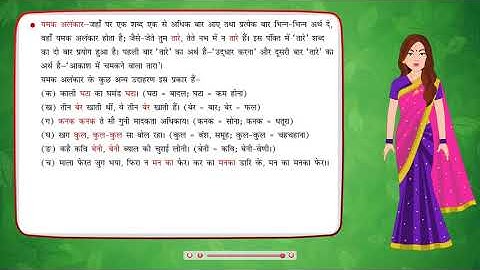 यमक अलंकार–जहाँ पर एक शब्द एक से अधिक बार आए तथा प्रत्येक बार भिन्न-भिन्न अर्थ दे,
वहाँ यमक अलंकार होता है; जैसे-जेते तुम तारे, तेते नभ में न तारे हैं। इस पंक्ति में 'तारे' शब्द
का दो बार प्रयोग हुआ है। पहली बार 'तारे' का अर्थ है–'उद्धार करना' और दूसरी बार 'तारे' का
अर्थ है–'आकाश में चमकने वाला तारा'।
यमक अलंकार के कुछ अन्य उदाहरण इस प्रकार हैं–
(क) काली घटा का घमंड घटा। (घटा - बादल; घटा - कम होना)
(ख) तीन बेर खाती थीं, वे तीन बेर खाती हैं। (बेर - बार; बेर - फल)
(ग) कनक कनक ते सौ गुनी मादकता अधिकाय। (कनक - सोना; कनक - धतूरा)
(घ) खग कुल, कुल-कुल सा बोल रहा। (कुल - वंश, समूह; कुल-कुल - चहचहाना)
(ङ) कहै कवि बेनी, बेनी ब्याल की चुराई लीनी। (बेनी - कवि; बेनी-वेणी।)
(च) माला फेरत जुग भया, फिरा न मन का फेर। कर का मनका डारि के, मन का मनका फेर।।